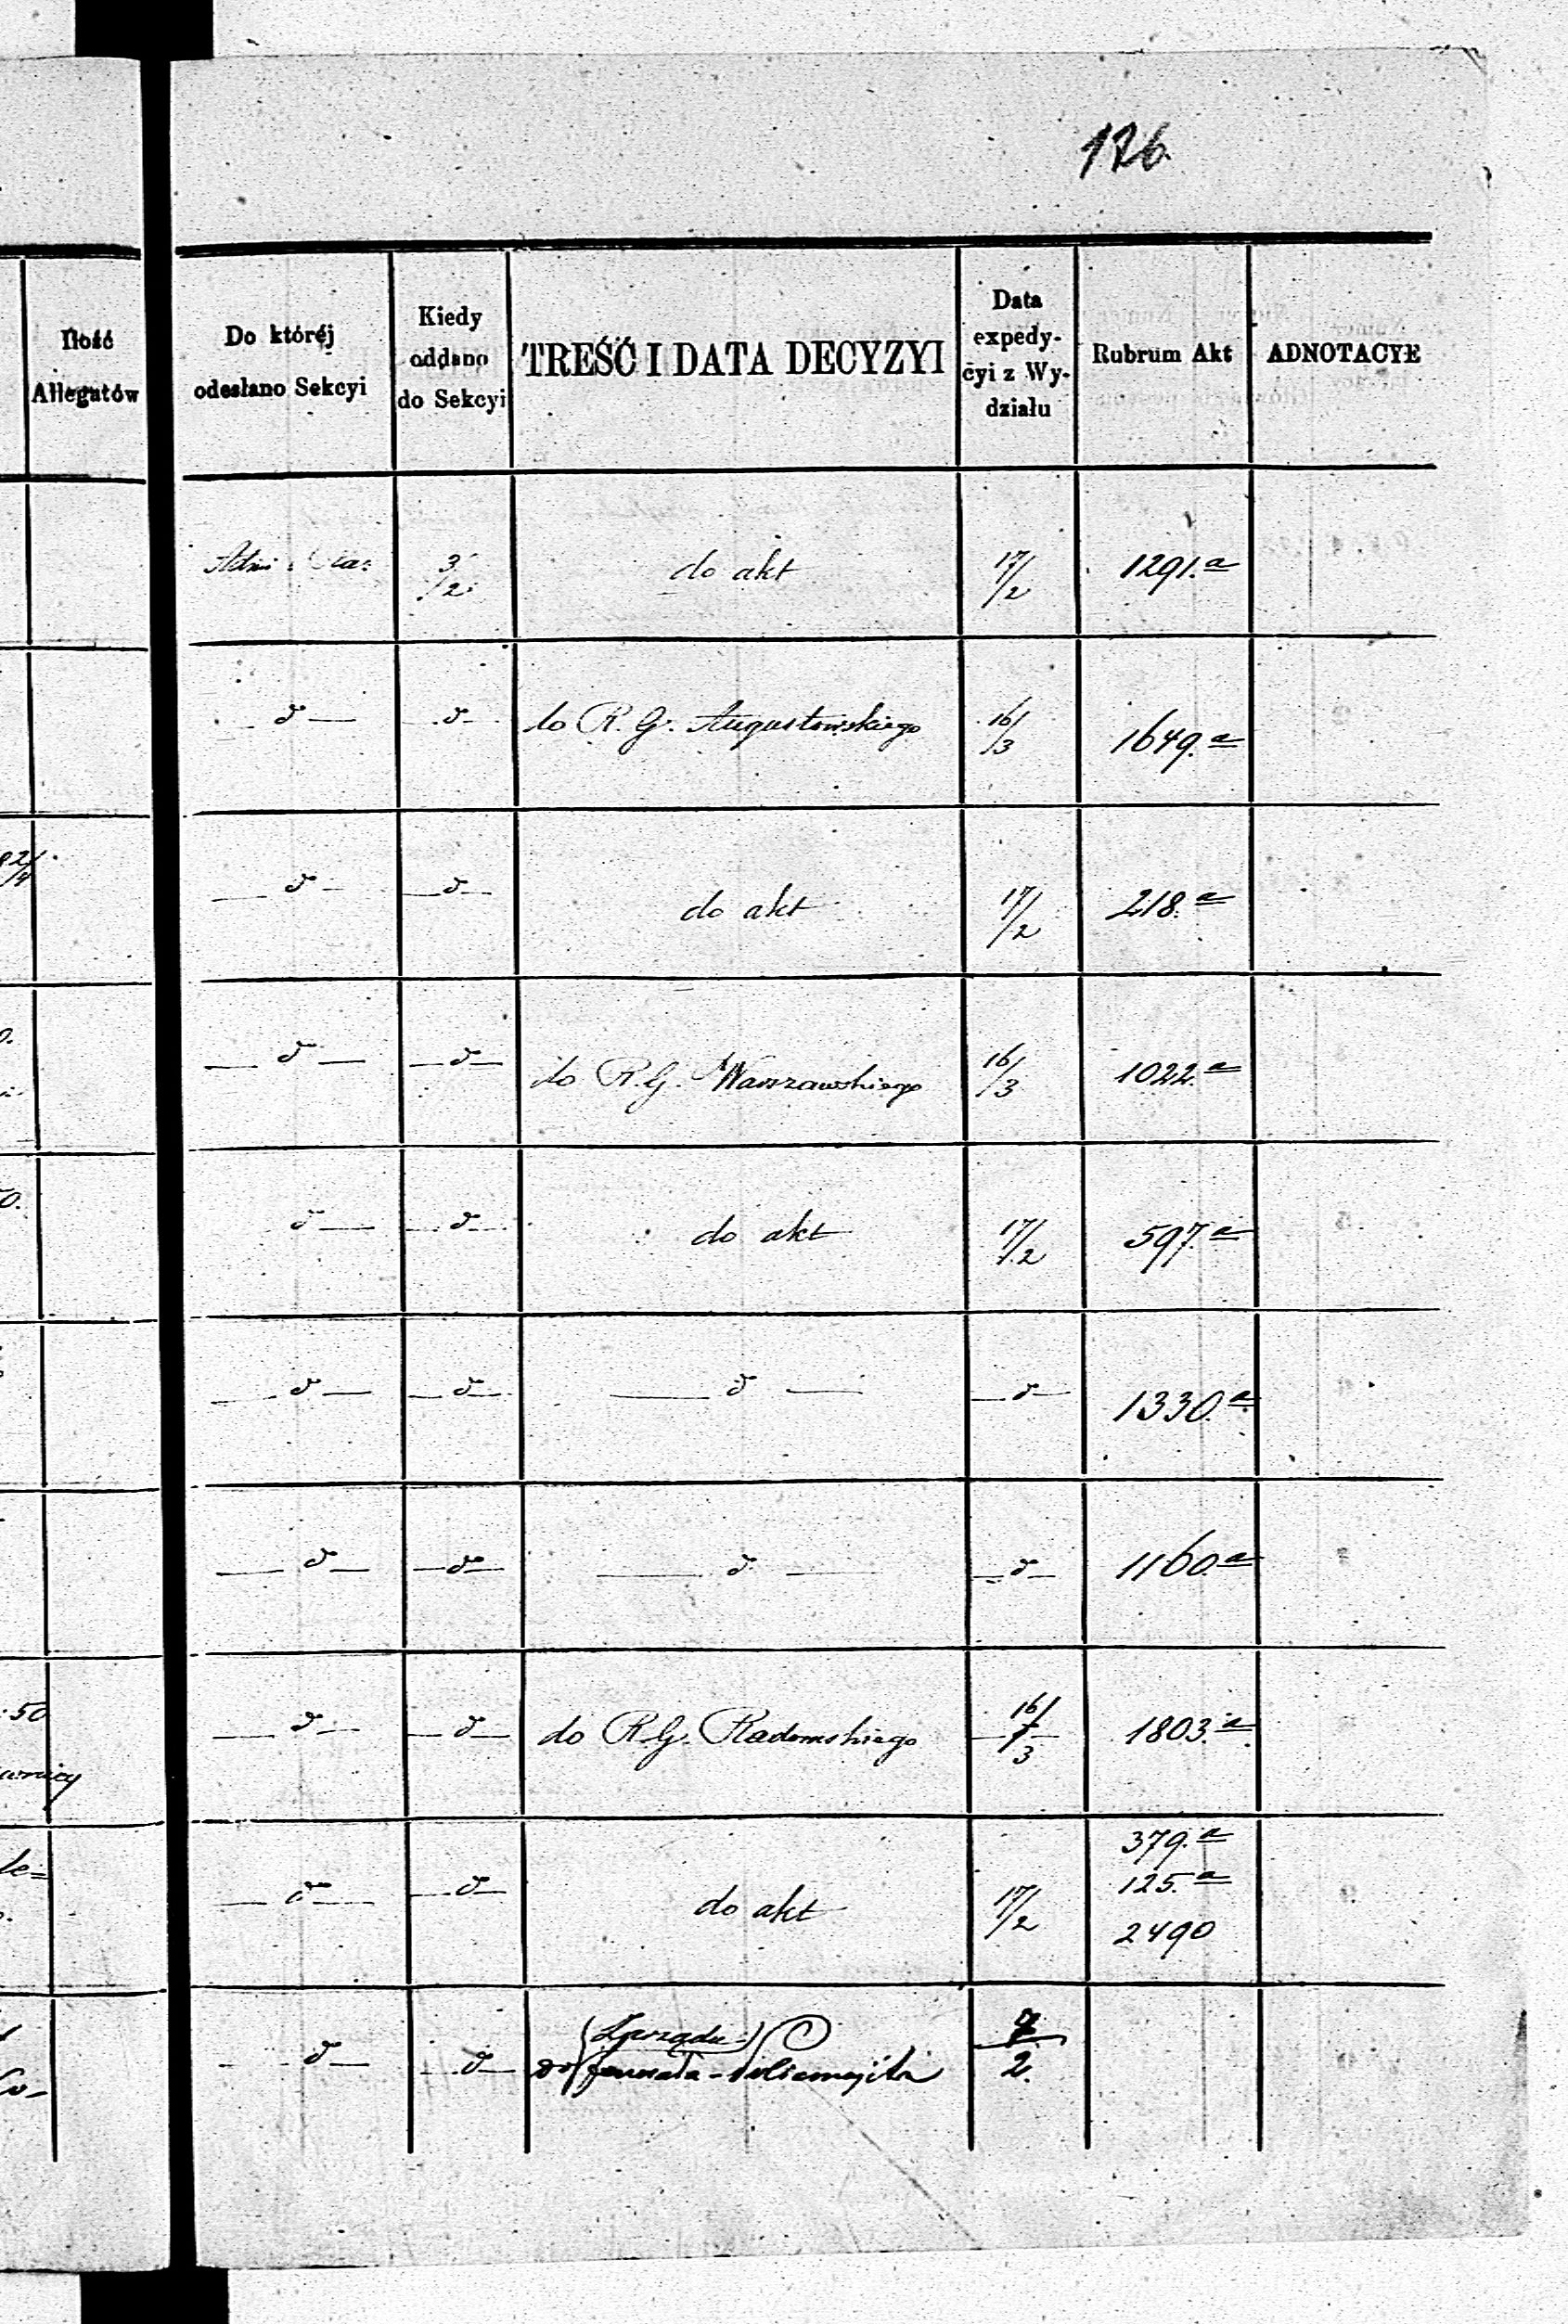 176.
Ilość
Allegatów
Do któréj
odesłano Sekcyi
Kiedy
oddano
do Sekcyi
TREŚĆ I DATA DECYZYI
Data
expedy-
cyi z Wy-
działu
Rubrum Akt
ADNOTACYE
3/2 do akt 17/2 1291.a
— d — — d — do R. G. Augustowskiego 16/3 1649.a
— d — — d — do akt 17/2 218.a
— d — — d — do R. G. Warszawskiego 16/3 1022.a
— d — — d — do akt 17/2 597.a
— d — — d — — d — — d — 1330.a
— d — — d — — d — — d — 1160.a
50
— d — — d — do R. G. Radomskiego 16/3 1803.a
379.a
125.a
— d — — d — do akt 17/2
2490
— d — — d — do (Zarządu) 7/2